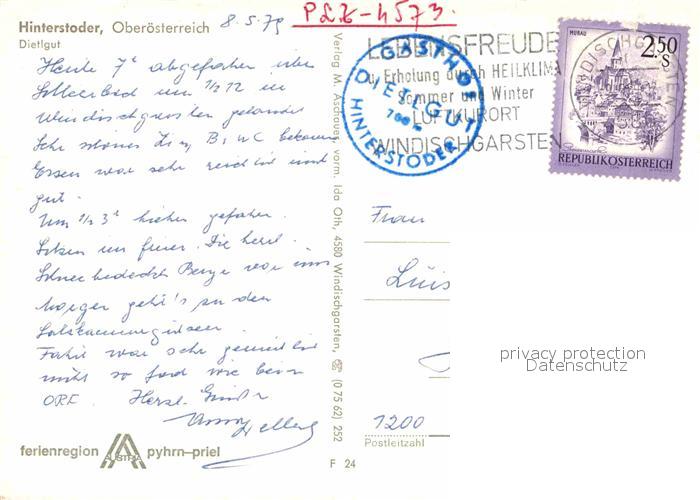 Hinterstoder, Oberösterreich 8.5.79
Dietlgut
PLZ-4573.
Heute 7h abgefahren über
um 1/2 12 in
Windischgarsten gelandet
Sehr schönes Zim, B, WC bekommen
Essen war sehr reichlich und
gut.
Um 1/2 3h hieher gefahren.
Sitzen im freien. Die herrl.
Schneebedeckte Berge vor uns
Morgen geht's zu den
Salzkammergutseen.
Fahrt war sehr gemütlich
nicht so fad wie beim
ORF. Herzl. Grüße
ferienregion AUSTRIA pyhrn-priel
Verlag M. Aschauer, vorm. Ida Oth, 4580 Windischgarsten, ☎ (0 75 62) 252
F 24
GASTHOF
DIETLGUT
HINTERSTODER
LEBENSFREUDE
u. Erholung durch HEILKLIMA
Sommer und Winter
LUFTKURORT
WINDISCHGARSTEN
WINDISCHGARSTEN
MURAU
2.50
S
REPUBLIK ÖSTERREICH
Frau
Luis
1200
Postleitzahl
privacy protection
Datenschutz